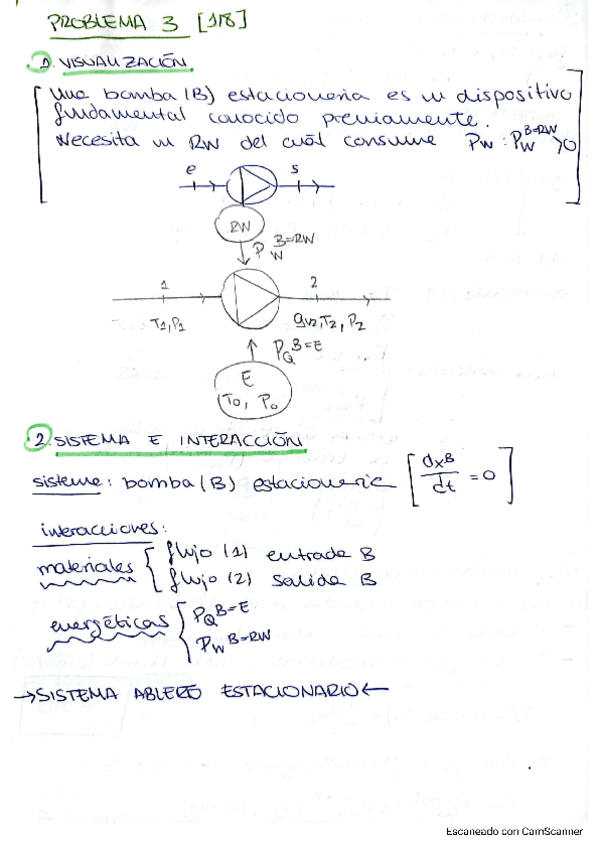 PROBLEMA 3 [1/8]
1. VISUALIZACIÓN
Una bomba (B) estacionaria es un dispositivo
fundamental conocido previamente.
Necesita un RW del cual consume Pw : P_W^{B=RW} > 0
e s
RW
P_W^{B=RW}
1 2
T1, P1 qv2, T2, P2
P_Q^{B=E}
E
T0, P0
2. SISTEMA E INTERACCIÓN
sistema: bomba (B) estacionaria [dx^B/dt = 0]
interacciones:
materiales { flujo (1) entrada B
flujo (2) salida B
energéticas { P_Q^{B=E}
P_W^{B=RW}
→SISTEMA ABIERTO ESTACIONARIO←
Escaneado con CamScanner